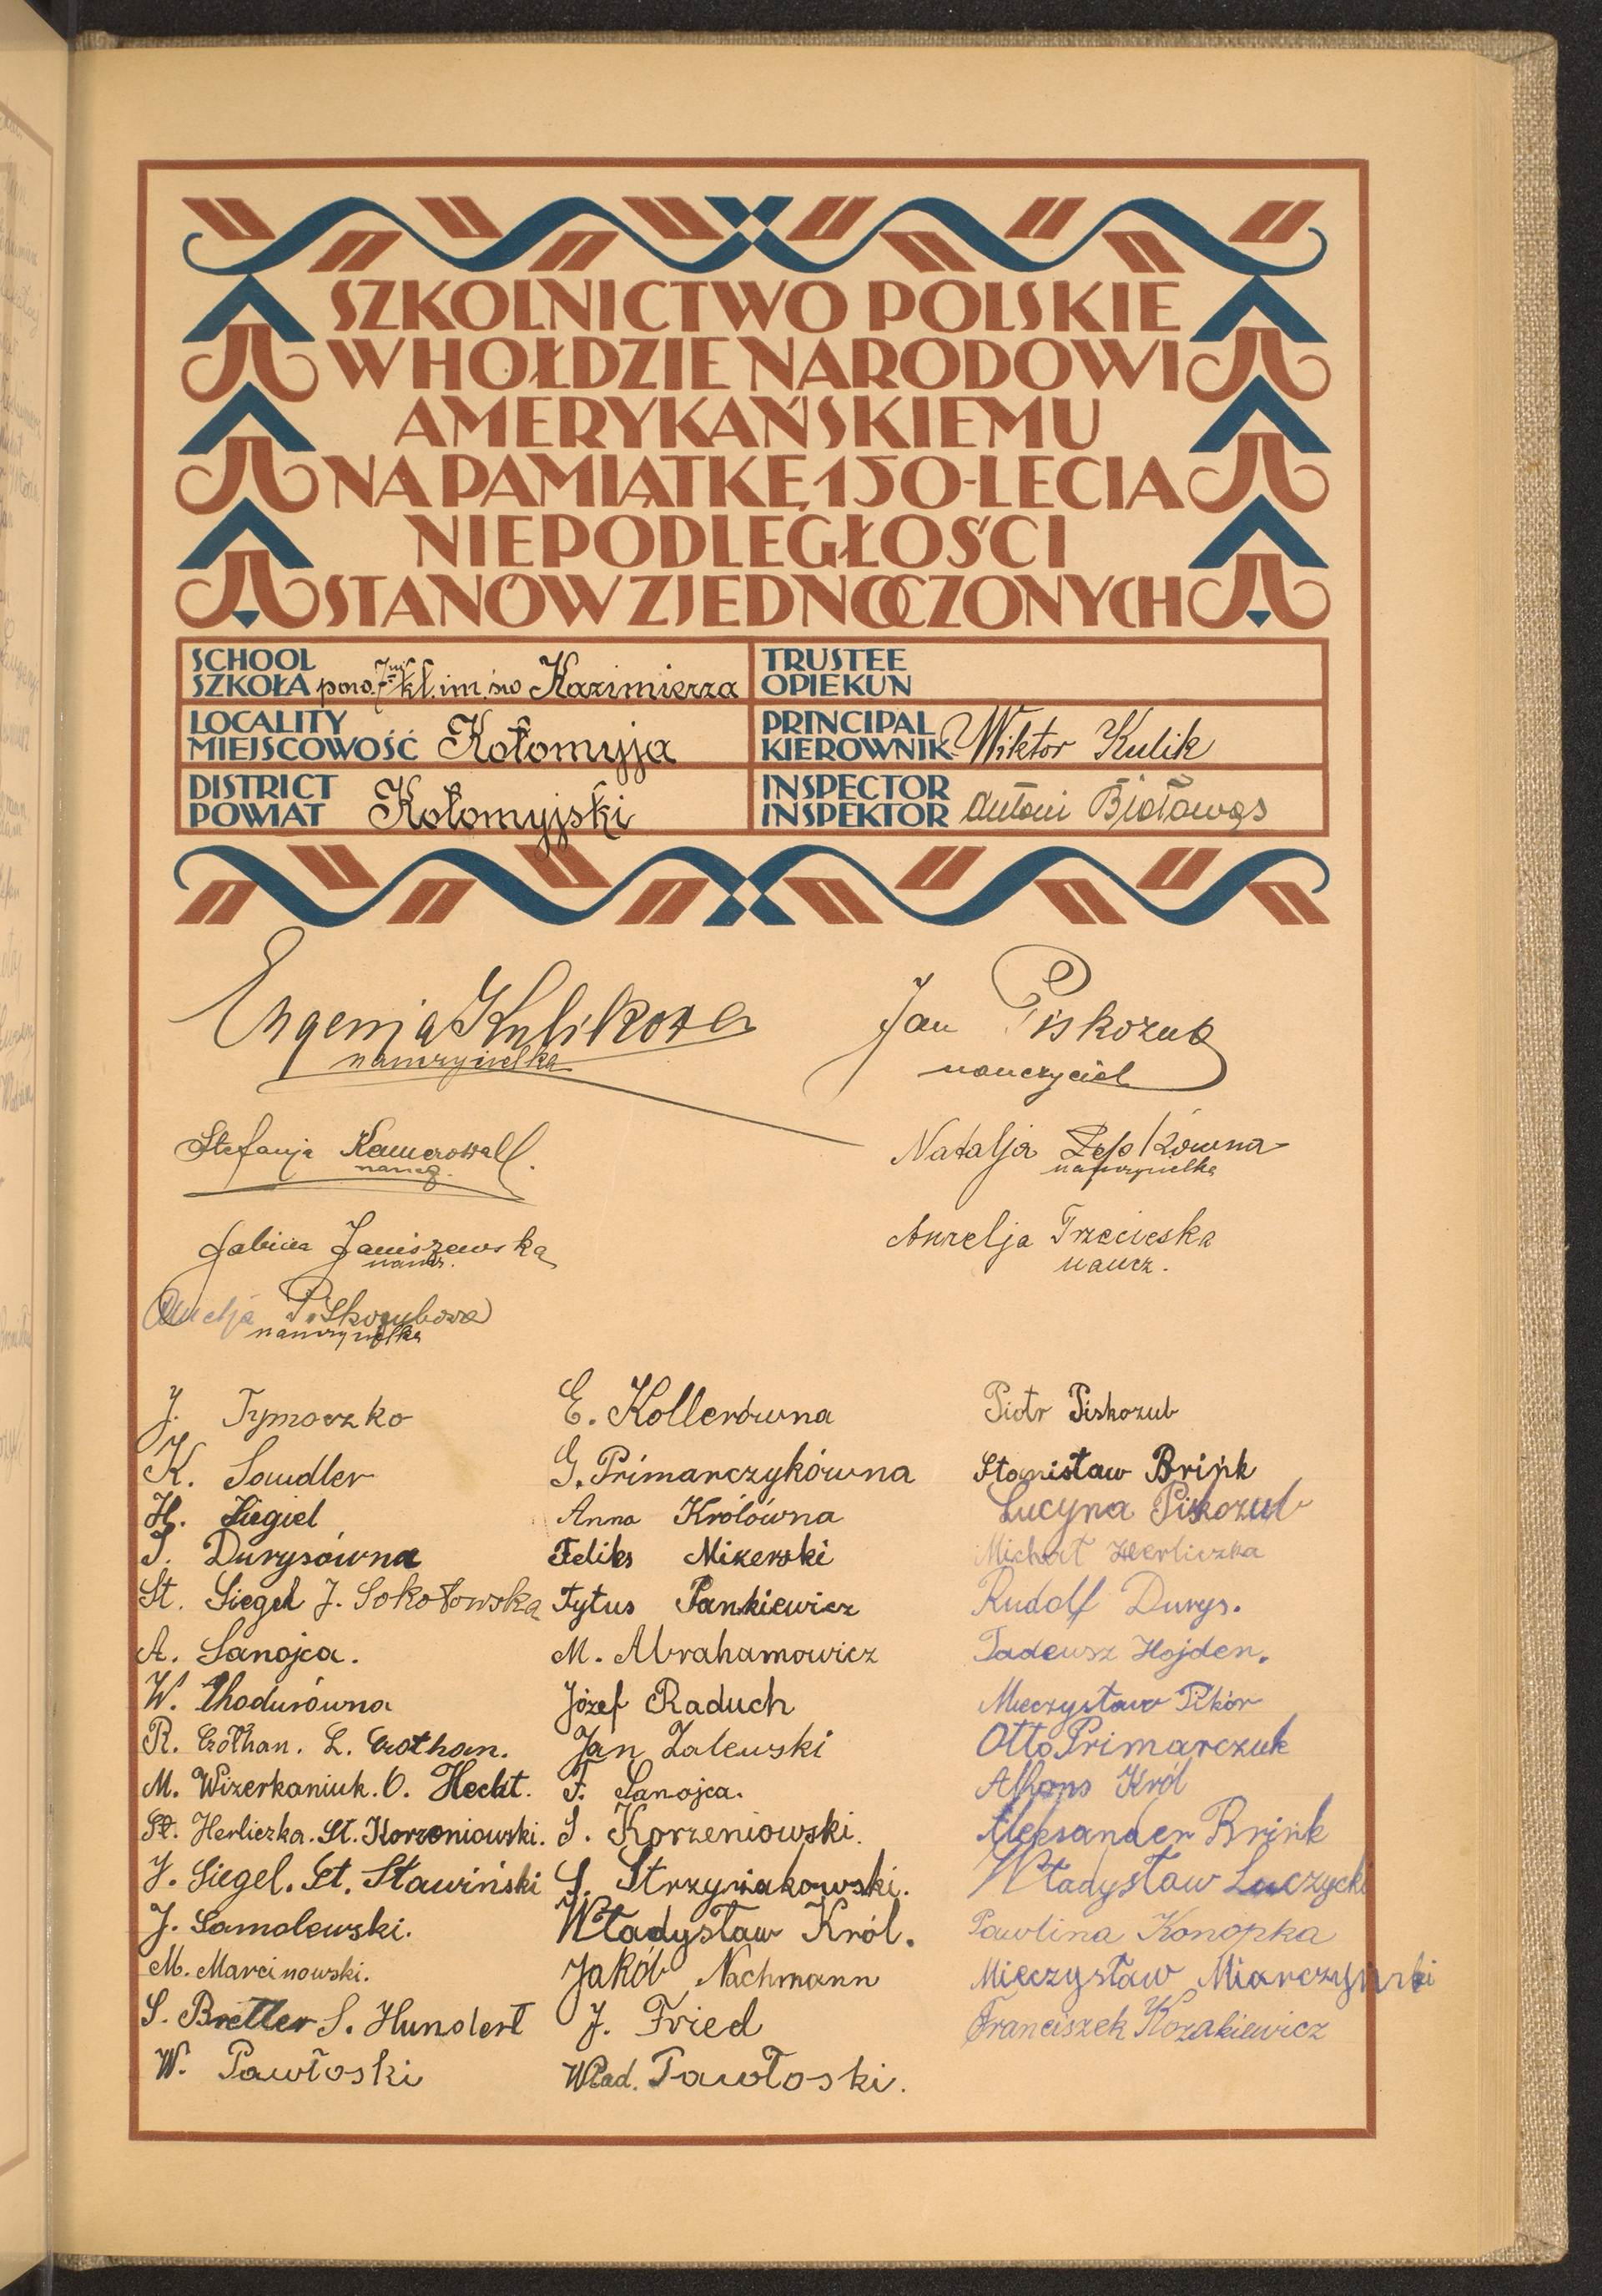 SZKOLNICTWO POLSKIE
W HOŁDZIE NARODOWI
AMERYKAŃSKIEMU
NA PAMIĄTKĘ 150-LECIA
NIEPODLEGŁOŚCI
STANÓW ZJEDNOCZONYCH
SCHOOL
SZKOŁA pow. 7mio kl. im. św Kazimierza
TRUSTEE
OPIEKUN
LOCALITY
MIEJSCOWOŚĆ Kołomyja
PRINCIPAL
KIEROWNIK Wiktor Kulik
DISTRICT
POWIAT Kołomyjski
INSPECTOR
INSPEKTOR Antoni Białowąs
Eugenja Kulikowa
nauczycielka
Jan Piskozub
nauczyciel
Stefanja
naucz.
Natalja
nauczycielka
Janiszewska
naucz.
Aurelja Trzecieska
naucz.
Amelja Piskozubowa
nauczycielka
J. Tymoczko
K. Sandler
H. Siegiel
S. Durysówna
St. Siegel J. Sokołowska
A. Sanojca.
W. Chodurówna
R. Crothan. L. Crothan.
M. Wizerkaniuk. O. Hecht.
St. Herliczka. St. Korzeniowski.
J. Siegel. St. Sławiński
J. Samolewski.
M. Marcinowski.
S. Bretler S. Hundert
W. Pawłoski
E. Kollerówna
G. Primarczykówna
Anna Królówna
Feliks Mikerski
Tytus Pankiewicz
M. Abrahamowicz
Józef Raduch
Jan Zalewski
F. Sanojca.
S. Korzeniowski.
S. Strzyniakowski.
Władysław Król.
Jakób Nachmann
J. Fried
Wład. Pawłoski.
Piotr Piskozub
Stanisław Brink
Lucyna Piskozub
Michał Herliczka
Rudolf Durys.
Tadeusz Hojden.
Mieczysław Pikór
Otto Primarczuk
Alfons Król
Aleksander Brink
Władysław Łuczycki
Pawlina Konopka
Mieczysław Miarczyński
Franciszek Kozakiewicz